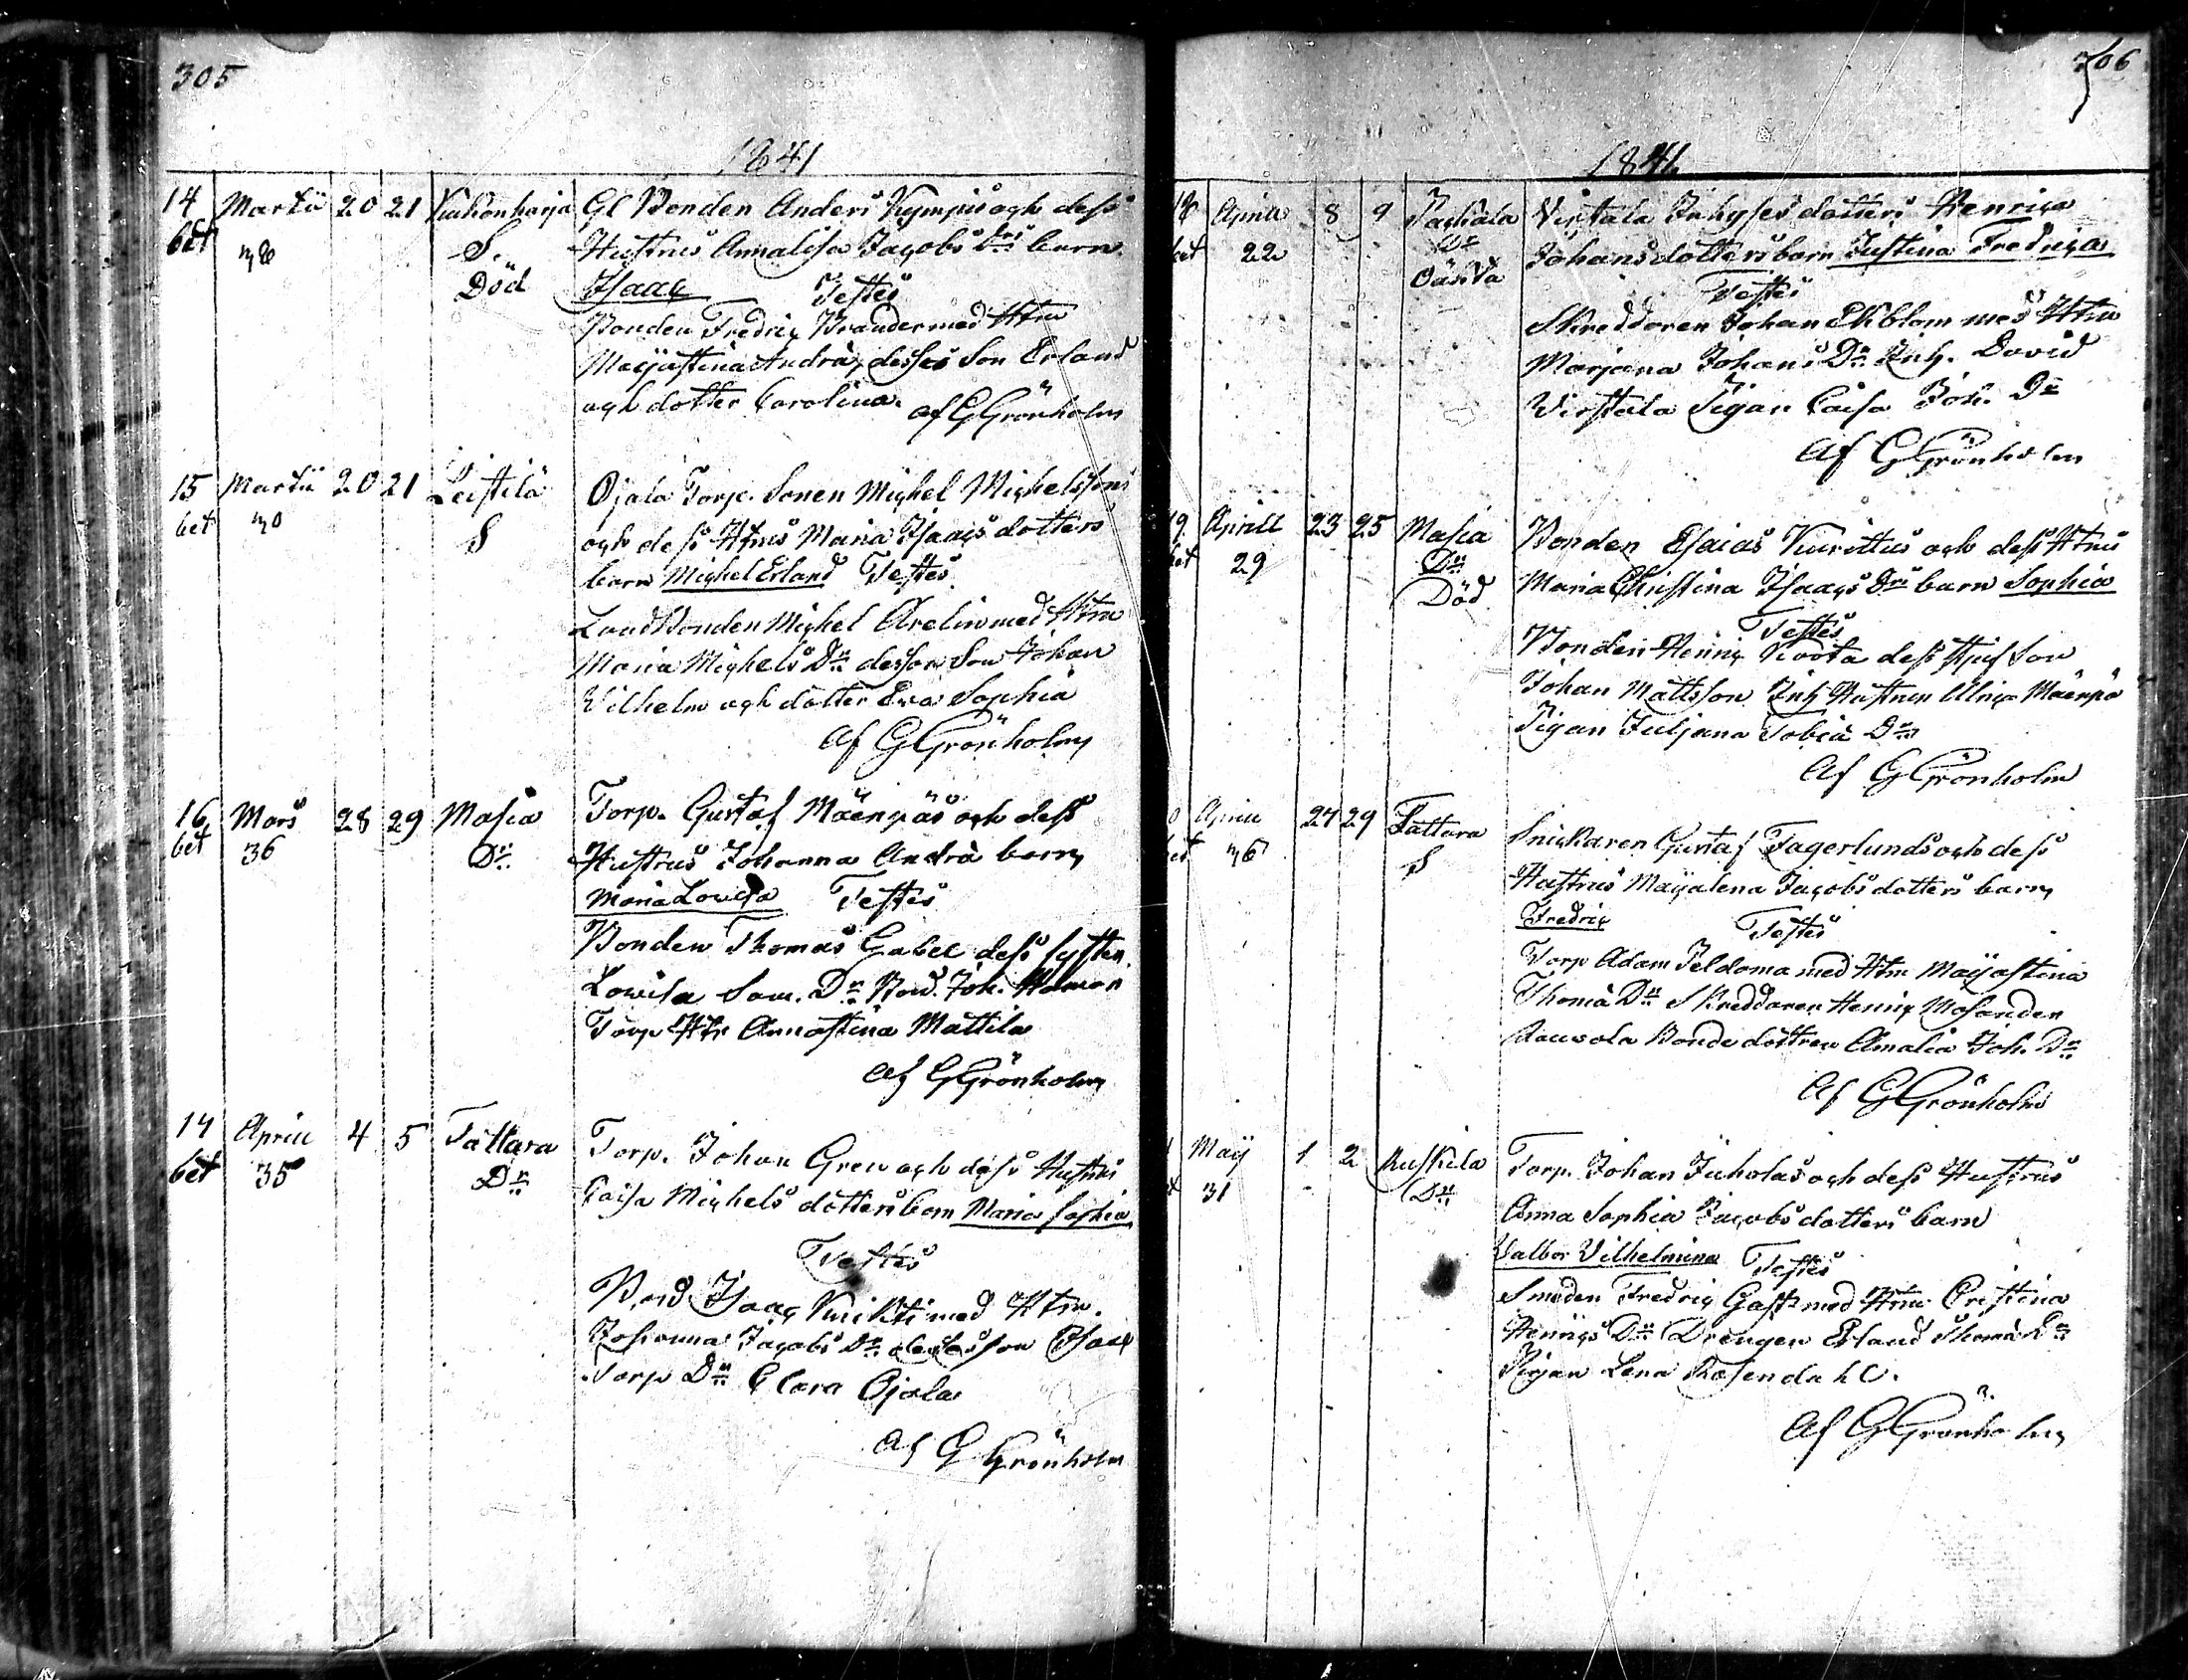 305
1841
14 Martii 20 21 Kiukonharja Gl Bonden Anders Nympis och dess
bet S. Hustrus Annalisa Jacobs Drs barn
Död Isaac Testes
Bonden Fredric Brander med Htru
Majastina Andrä, desses Son Erland
och dotter Carolina.
af G Grönholm
15 Martii 20 21 Leistilä Ojala Torp. Sonen Michel Michelssons
bet 30 S och dess Htrus Maria Isaacs dotters
barn Michel Erland Testes
Landbonden Michel Arelin med Htru
Maria Michels Dr dessas Son Johan
Vilhelm och dotter Eva Sophia
af G Grönholm
16 Mars 28 29 Masia Torp. Gustaf Mäenpäs och dess
bet 36 Dr Hustrus Johanna Andrä barn
Maria Lovisa Testes
Bonden Thomas Gabel dess syster
Lowisa Sam. Dr Bond. Joh.
Torp Htr Annastina Mattila
Af G Grönholm
17 Aprill 4 5 Tattara Torp. Johan Gren och dess Hustrus
bet 35 Dr Caisa Michels dotters barn Maria Sophia
Testes
Bond Isaac Knichti med Htru.
Johanna Jacobs Dr desses son Isac
Torp Dr Clara Ojala
Af G Grönholm
306
1841
18 Aprill 8 9 Paskala Virstala Inhyses dotters Henrica
bet 22 Dr Johans dotters barn Justina Fredrica
Oäkta Testes
Skreddaren Johan Ekblom med Htru
Marjana Johans Dr Inh. David
Virstala Pigan Caisa Joh. Dr
Af G Grönholm
19 Aprill 23 25 Masia Bonden Esaias Kurittus och dess Htrus
bet 29 Dr Maria Christina Isaacs Drs barn Sophia
Död Testes
Bonden Henric Roota dess stjuf Son
Johan Mattsson Inh Hustrun Ulrica Mäenpä
Pigan Juljana Tobiä Dr
Af G Grönholm
Aprill 27 29 Tattara Snickaren Gustaf Fagerlunds och dess
bet 36 S Hustrus Majalena Jacobs dotters barn
Fredric Testes
Torp Adam Peldoma med Htru Majastina
Thomä Dr Skreddaren Henric Mosander
Rauvola Bonde dottren Amalia Joh. Dr
Af G Grönholm
Maij 1 2 Ruskila Torp. Johan Juholas och dess Hustrus
31 Dr Anna Sophia Jacobs dotters barn
Valbor Vilhelmina Testes
Smeden Fredric Gast med Htru Cristina
Henrics Dr Drengen Erland Thomä
Pigan Lena Rosendahl.
Af G Grönholm